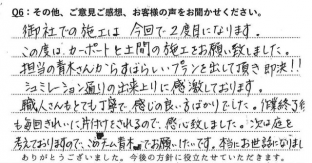 Q6：その他、ご意見ご感想、お客様の声をお聞かせください。
御社での施工は 今回で2度目になります。
この度は、カーポートと土間の施工をお願い致しました。
担当の青木さんからすばらしいプランを出して頂き即決!!
シュミレーション通りの出来上りに感激しております。
職人さんもとても丁寧で、感じの良い方ばかりでした。作業終了後
も毎回きれいに片付けをされるので、感心致しました。次は庭を
考えておりますので、このチーム青木でお願いしたいです。本当にお世話になりました
ありがとうございました。今後の方針に役立たせていただきます。